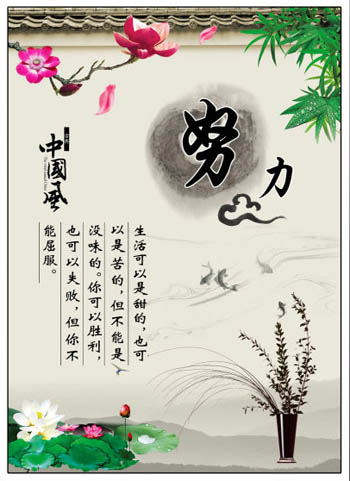 努力
生活可以是甜的,也可
以是苦的,但不能是
没味的。你可以胜利,
也可以失败,但你不
能屈服。
中國風